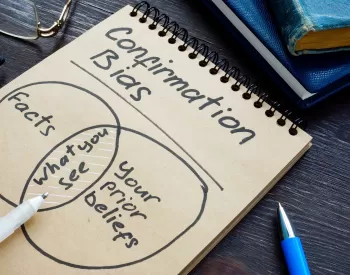 Confirmation
Bias
Facts
what you
see
Your
prior
beliefs